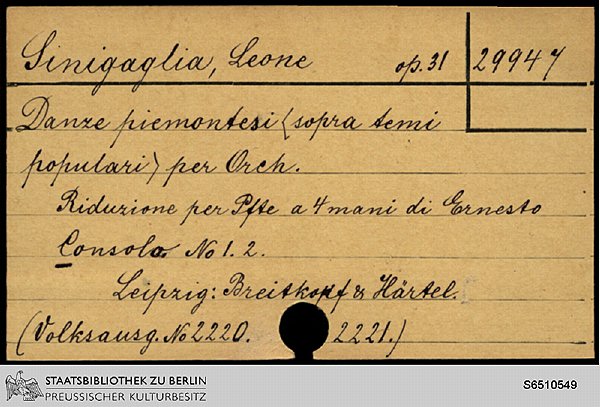 Sinigaglia, Leone op. 31 29947
Danze piemontesi (sopra temi
popolari) per Orch.
Riduzione per Pfte a 4 mani di Ernesto
Consolo. No 1. 2.
Leipzig: Breitkopf & Härtel.
(Volksausg. No 2220. 2221.)
STAATSBIBLIOTHEK ZU BERLIN
PREUSSISCHER KULTURBESITZ
S6510549